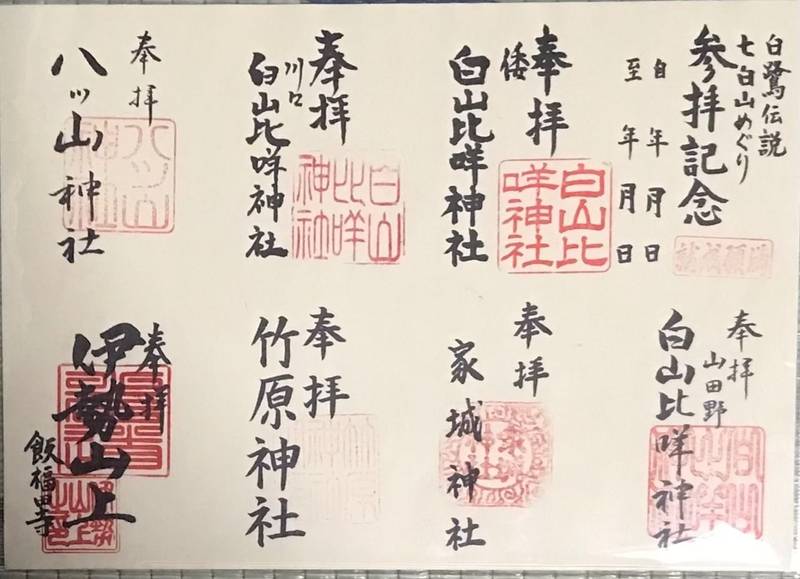 白鷺伝説
七白山めぐり
参拝記念
自 年 月 日
至 年 月 日
奉拝
倭
白山比咩神社
白山比咩神社
奉拝
川口
白山比咩神社
白山比咩神社
奉拝
八ッ山神社
奉拝
山田野
白山比咩神社
奉拝
家城神社
奉拝
竹原神社
奉拝
伊勢山上
飯福田寺